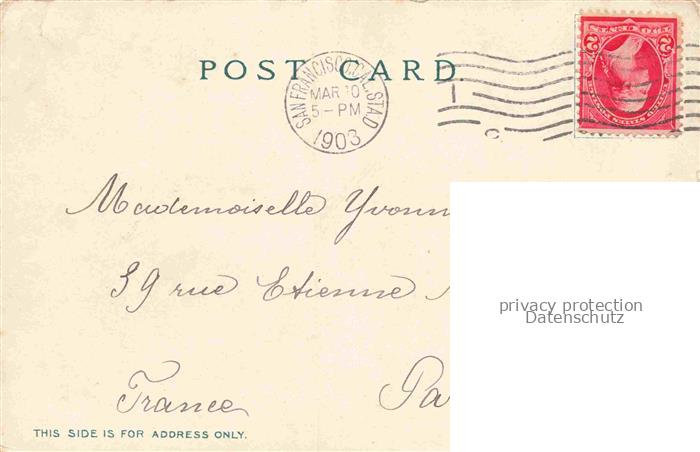 POST CARD
SAN FRANCISCO, CAL. STA.D
MAR 10
5-PM
1903
C
Mademoiselle Yvonn
39 rue Etienne
France Pa
THIS SIDE IS FOR ADDRESS ONLY.
privacy protection
Datenschutz